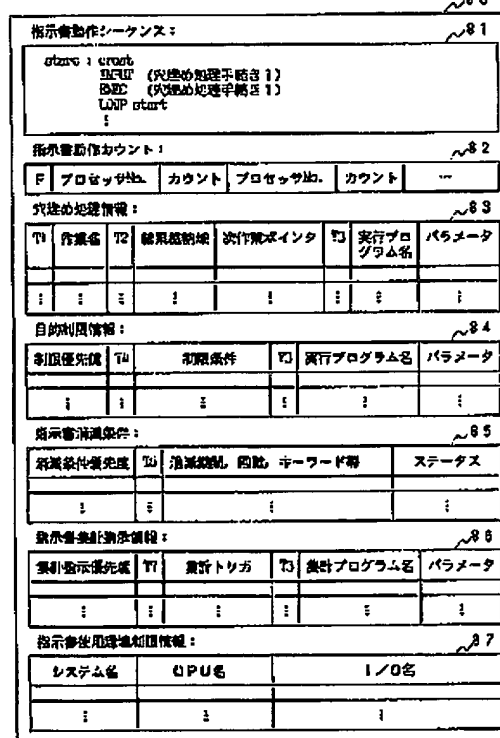 指示書動作シーケンス：
81
start : crost
INPUT (穴埋め処理手続き1)
EXEC (穴埋め処理手続き1)
LOOP start
指示書動作カウント：
82
F プロセッサNo. カウント プロセッサNo. カウント …
穴埋め処理情報：
83
T1 作業名 T2 結果格納域 次作業ポインタ T3 実行プログラム名 パラメータ
目的制限情報：
84
制限優先度 T4 制限条件 T3 実行プログラム名 パラメータ
指示書消滅条件：
85
消滅条件優先度 T6 消滅期間, 回数, キーワード等 ステータス
指示書集計指示情報：
86
集計指示優先度 T7 集計トリガ T3 集計プログラム名 パラメータ
指示書使用環境制限情報：
87
システム名 CPU名 I/O名